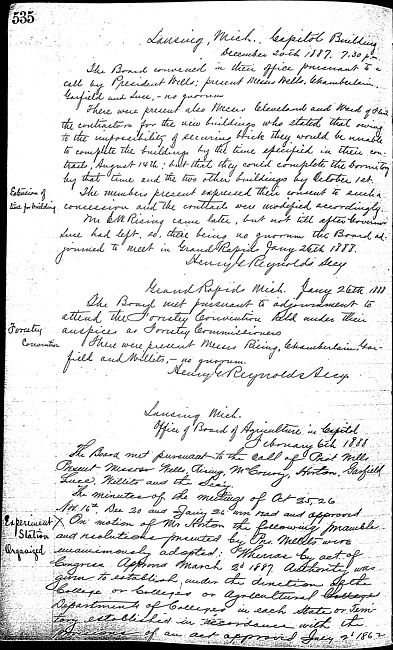 535
Lansing, Mich., Capitol Building
December 20th 1887. 7.30 p.m.
The Board convened in their office pursuant to a
call by President Wells; present Messrs Wells, Chamberlain,
Garfield and Luce, - no quorum
There were present also Messrs Cleveland and Ward of
the contractors for the new buildings who stated that owing
to the impossibility of securing brick they would be unable
to complete the buildings by the time specified in their con-
tracts, August 14th; but that they could complete the Dormitory
by that time and the two other buildings by October 1st.
Extension of
time for building
The members present expressed their consent to such
concession and the contracts were modified accordingly
Mr. E W Rising came later, but not till after Governor
Luce had left, so, there being no quorum the Board ad-
journed to meet in Grand Rapids Jany 26th 1888.
Henry G Reynolds Secy
Grand Rapids Mich. Jany 26th 1888
The Board met pursuant to adjournment to
attend the Forestry Convention held under their
auspices as Forestry Commissioners
Forestry
Convention
There were present Messrs Rising, Chamberlain, Gar-
field and Willits, - no quorum.
Henry G Reynolds Secy
Lansing Mich.
Office of Board of Agriculture in Capitol
February 6th 1888
The Board met pursuant to the call of Prest Wells
Present Messrs Wells, Rising, McCreery, Horton, Garfield
Luce, Willits and the Secy.
The minutes of the meetings of Oct 25, 26
Nov 16th, Dec 20 and Jany 26 were read and approved
Experiment X
Station
Organized
On motion of Mr. Horton the following preamble
and resolutions presented by Prs. Willits were
unanimously adopted: "Whereas by act of
Congress Approved March 2d 1887 Authority was
given to establish, under the direction of the
College or Colleges or Agricultural Colleges
Departments of Colleges in each State or Terri-
tory established in accordance with the
provisions of an act approved July 2d 1862